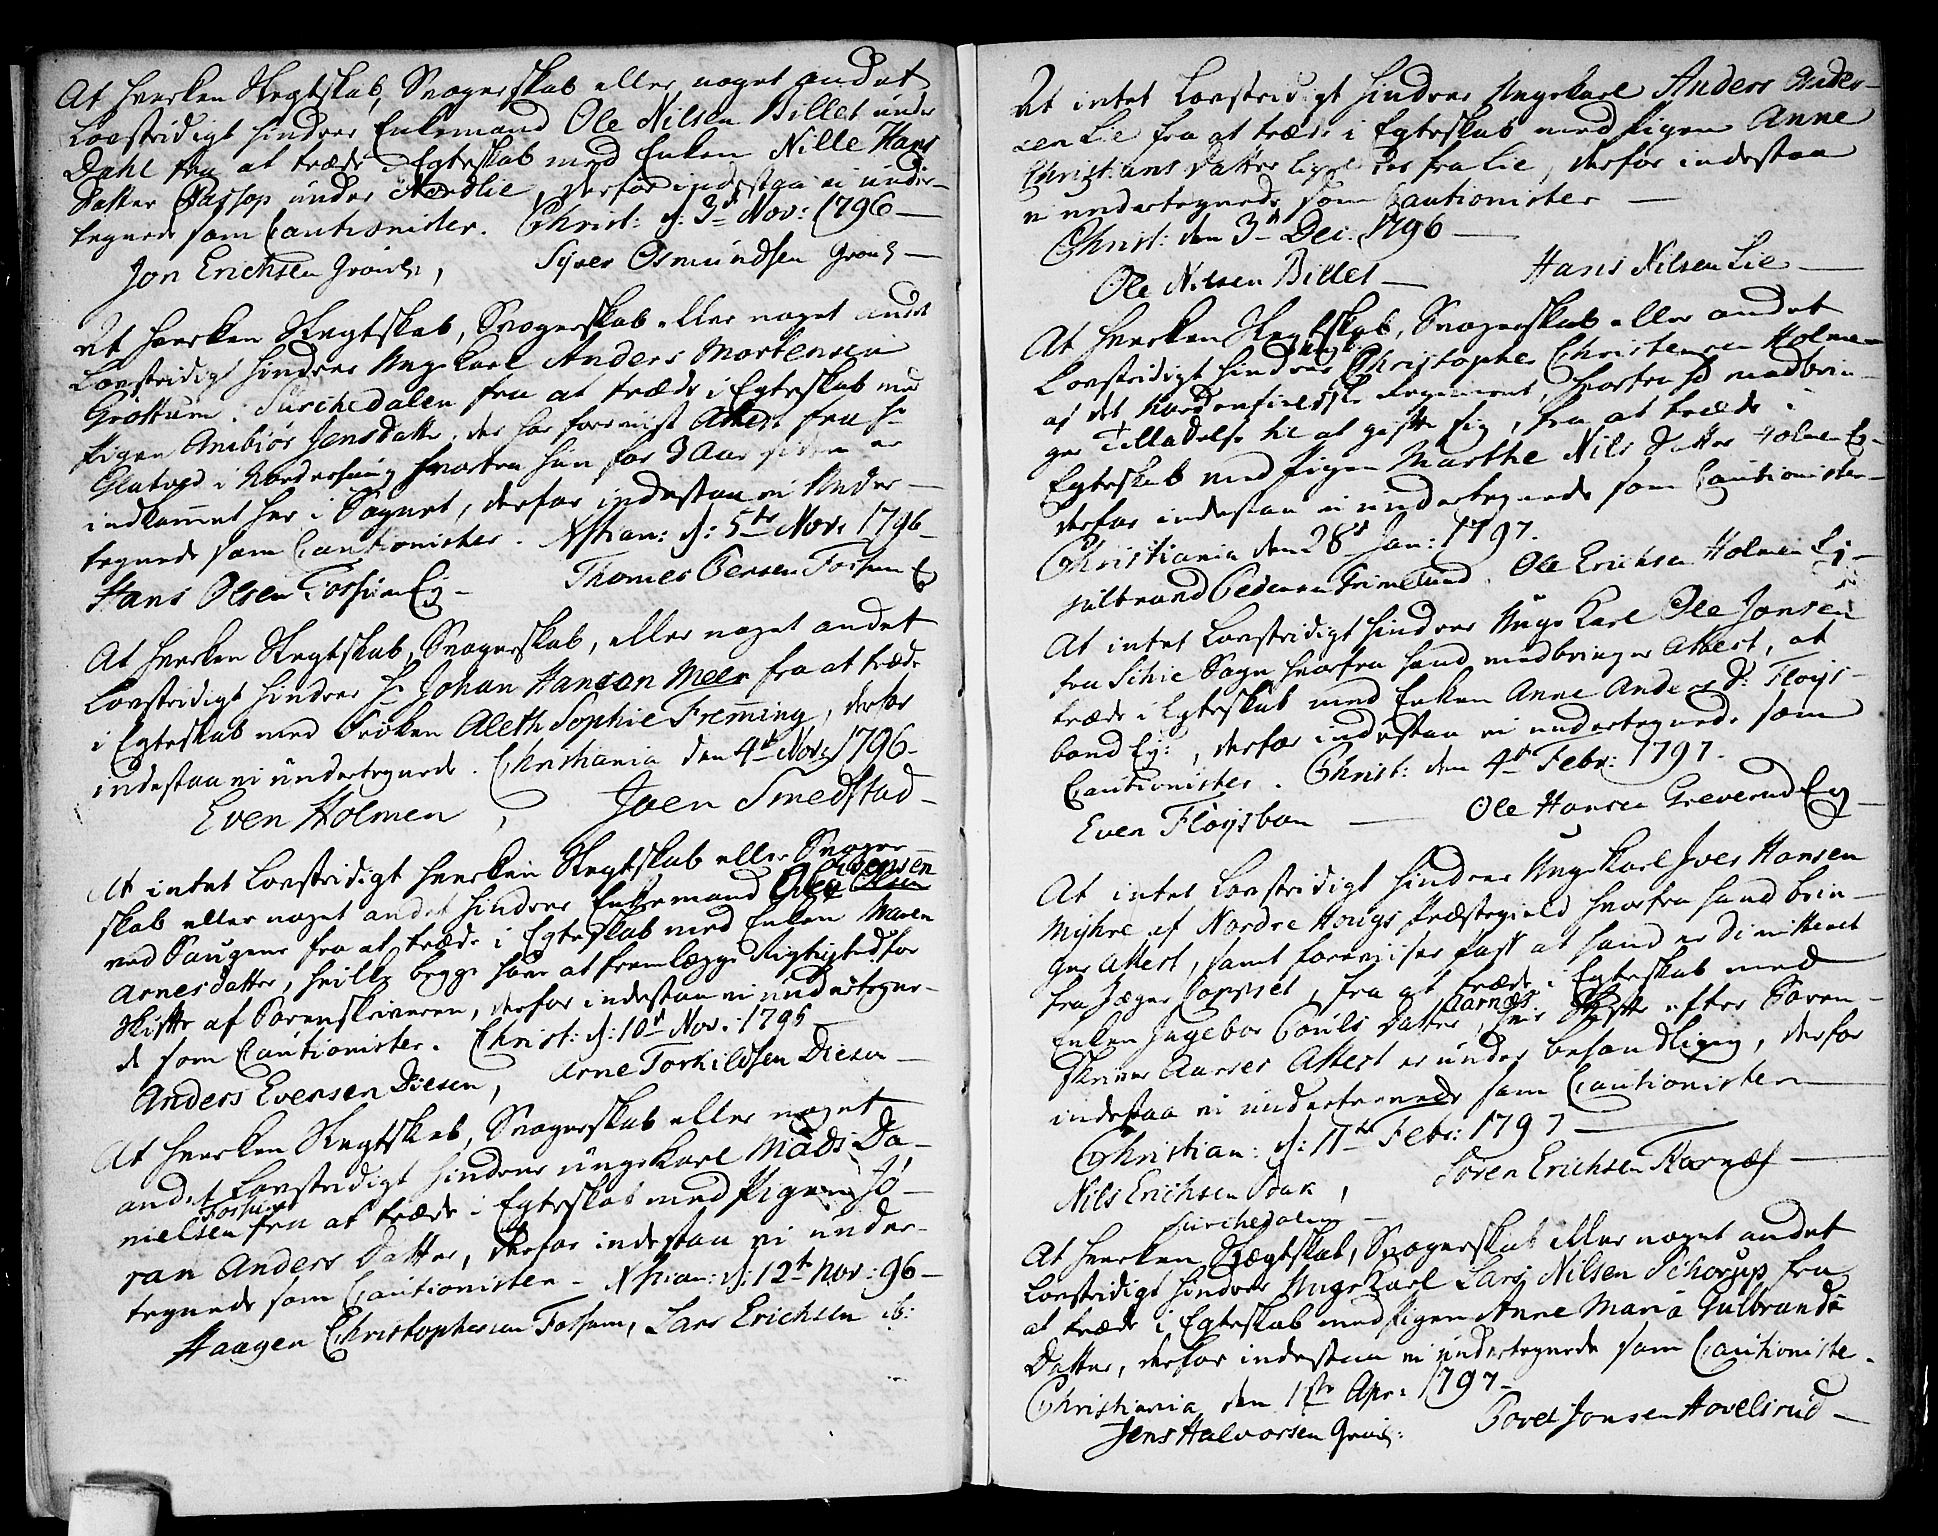 At hverken Slegtskab, Svogerskab eller noget andet
Lovstridigt hindrer Enkemand Ole Nilsen Billet under
Dahl fra at træde i Egteskab med Enken Nille Hans
Datter under Nordlie, derfor indestaa vi under-
tegnede som Cautionister. Christ: d: 3d Nov: 1796 —
Jon Erichsen Groud, Syver Osmundsen Groud —
At hverken Slegtskab, Svogerskab eller noget andet
Lovstridigt hindrer Ungekarl Anders Mortensen
Grøttum i Surchedalen fra at træde i Egteskab med
Pigen Anbiør Jensdatter, der har foreviist Attest fra Hr
Glatved i Norderhoug hvorfra hun for 3 Aar siden er
indkommet her i Sognet, derfor indestaa vi Under-
tegnede som Cautionister. Xstian: d: 5te Nov: 1796 —
Hans Olsen Fossum Ej — Thomes Persen Fossum Ej
At hverken Slegtskab, Svogerskab, eller noget andet
Lovstridigt hindrer Hr Johan Hansen Meer fra at træde
i Egteskab med Frøken Aleth Sophie Fremming, derfor
indestaa vi undertegnede. Christiania den 4de Nov: 1796 —
Even Holmen, Joen Smedstad —
At intet Lovstridigt hverken Slegtskab eller Svoger-
skab eller noget andet hindrer Enkemand Ole Olsen
ved Saugene fra at træde i Egteskab med Enken Maren
Arnesdatter, hvilke begge have at fremlægge Rigtighed for
Skifte af Sorenskriveren, derfor indestaa vi undertegne-
de som Cautionister. Christ: d: 10d Nov: 1796
Anders Evensen Diesen, Arne Torkildsen Diesen —
At hverken Slegtskab, Svogerskab eller noget
andet Lovstridigt hindrer ungekarl Mads Da-
nielsen Fossum fra at træde i Egteskab med Pigen Jø-
ran Anders Datter, derfor indestaa vi under-
tegnede som Cautionister — Xstian: d: 12te Nov: 96 —
Haagen Christophersen Fossum, Lars Erichsen ib:
At intet Lovstridigt hindrer Ungekarl Anders Ander-
sen Lie fra at træde i Egteskab med Pigen Anne
Christians Datter ligeledes fra Lie, derfor indestaa
vi undertegnede som Cautionister —
Christ: den 3d Dec. 1796 —
Ole Nilsen Billet — Hans Nilsen Lie —
At hverken Slegtskab, Svogerskab eller andet
Lovstridigt hindrer Ungk: Christopher Christensen Holmen
af det Nordenfieldske Regiment, hvorfra hd medbrin-
ger Tilladelse til at gifte sig, fra at træde i
Egteskab med Pigen Marthe Nils Datter Holmen Ej-
derfor indestaa vi undertegnede som Cautionister —
Christiania den 28d Jan: 1797.
Hilbrand Pedersen Grimelund. Ole Erichsen Holmen Ej —
At intet Lovstridigt hindrer Ungekarl Ole Jonsen
fra Schie Sogn hvorfra hand medbringer Attest, at
træde i Egteskab med Enken Anne Anders Dr Fløys-
bond Ej:, derfor indestaa vi undertegnede som
Cautionister. Christ: den 4d Febr: 1797.
Even Fløysbon — Ole Hansen Greverud Ej —
At intet Lovstridigt hindrer Ungekarl Iver Hansen
Myhre af Nordre Hougs Præstegield hvorfra hand brin-
ger Attest, samt foreviiser Pass at hand er dimitteret
fra Jæger Corpset, fra at træde i Egteskab med
Enken Ingebor Pouls Datter Aarnæs, hvis Skifte efter Soren-
skriver Aarses Attest er under behandling, derfor
indestaa vi undertegnede som Cautionister —
Christian: d: 11te Febr: 1797 —
Nils Erichsen Soak, Søren Erichsen Aarnæs —
Surchedalen —
At hverken Slægtskab, Svogerskab eller noget andet
Lovstridigt hindrer Ungekarl Lars Nilsen Schorup fra
at træde i Egteskab med Pigen Anne Maria Gulbrands
Datter, derfor indestaa vi undertegnede som Cautioniste.
Christiania den 1ste Apr: 1797 —
Jens Halvorsen Groud: Povel Jonsen Hovelsrud —